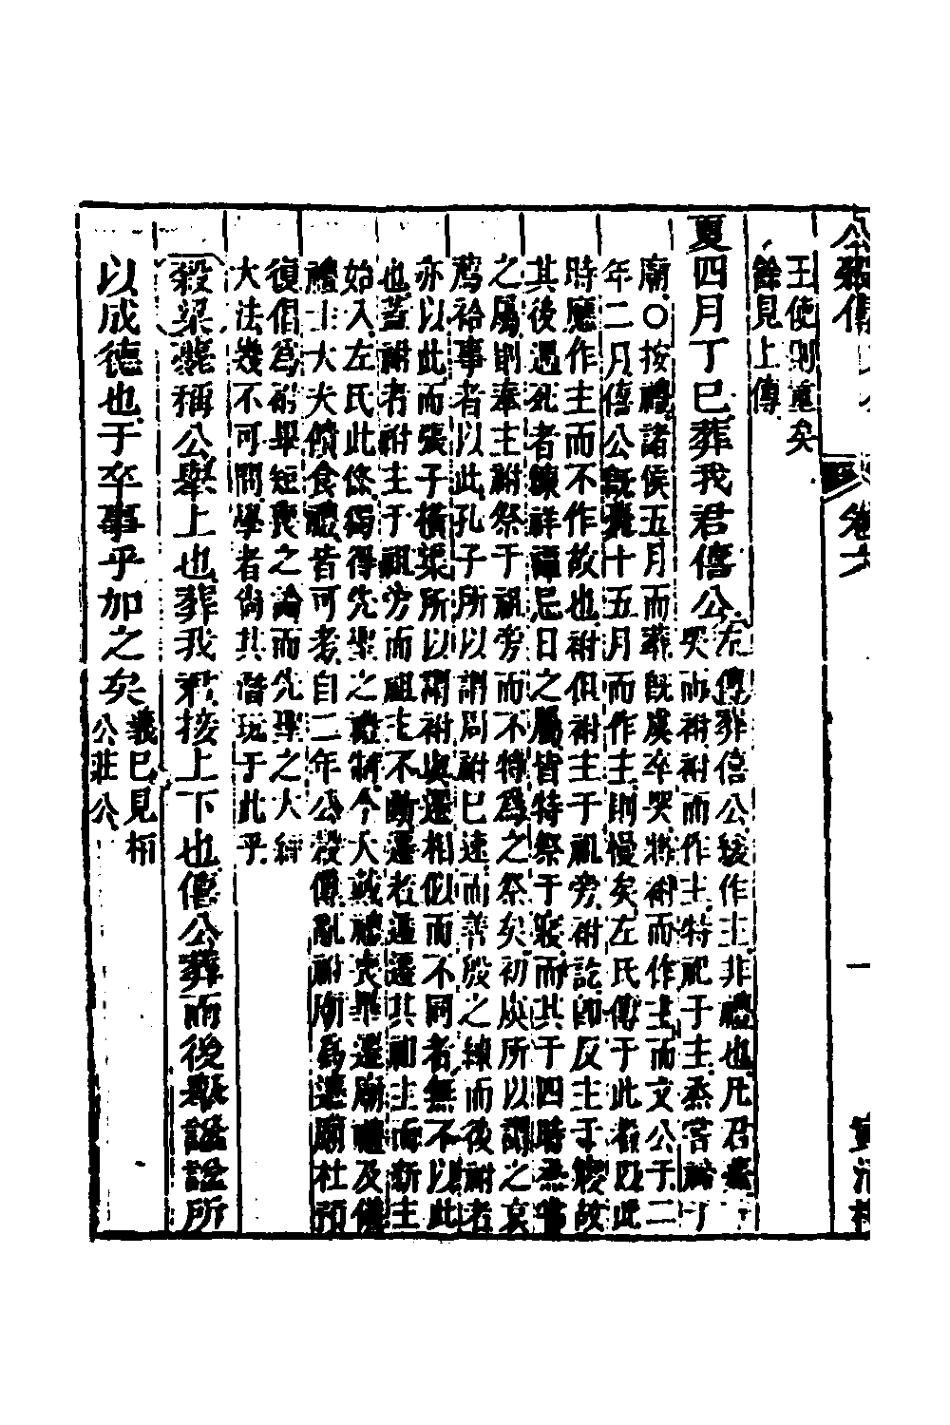 王使則重矣
餘見上傳
夏四月丁巳葬我君僖公
左傳葬僖公緩作主非禮也凡君薨
哭而祔祔而作主特祀于主烝嘗禘于
廟○按禮諸侯五月而葬既虞卒哭將祔而作主而文公于二
年二月僖公既薨十五月而作主則慢矣左氏傳于此者以此
時應作主而不作故也祔但祔主于祖旁祔訖即反主于寢故
其後遇死者練祥禫忌日之屬皆特祭于寢而其于四時烝嘗
之屬則奉主祔祭于祖旁而不特爲之祭矣初虞所以謂之哀
薦祫事者以此孔子所以謂周祔已速而善殷之練而後祔者
亦以此而張子橫渠所以謂祔與遷相似而不同者無不以此
也蓋祔者祔主于祖旁而祖主不動遷者遞遷其祖主而新主
始入左氏此條獨得先聖之禮制今大戴禮喪畢遷廟禮及儀
禮士大夫饋食禮皆可考自二年公穀傳亂祔廟爲遷廟杜預
復倡爲祔畢短喪之論而先聖之大
大法幾不可問學者尚其潛玩于此乎
穀梁薨稱公舉上也葬我君接上下也僖公葬而後舉謚謚所
以成德也于卒事乎加之矣
義已見桓
公莊公